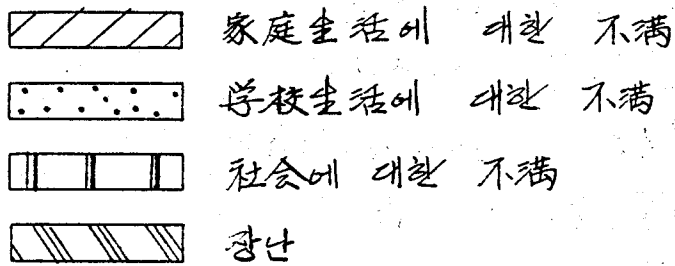 家庭生活에 대한 不満
学校生活에 대한 不満
社会에 대한 不満
장난